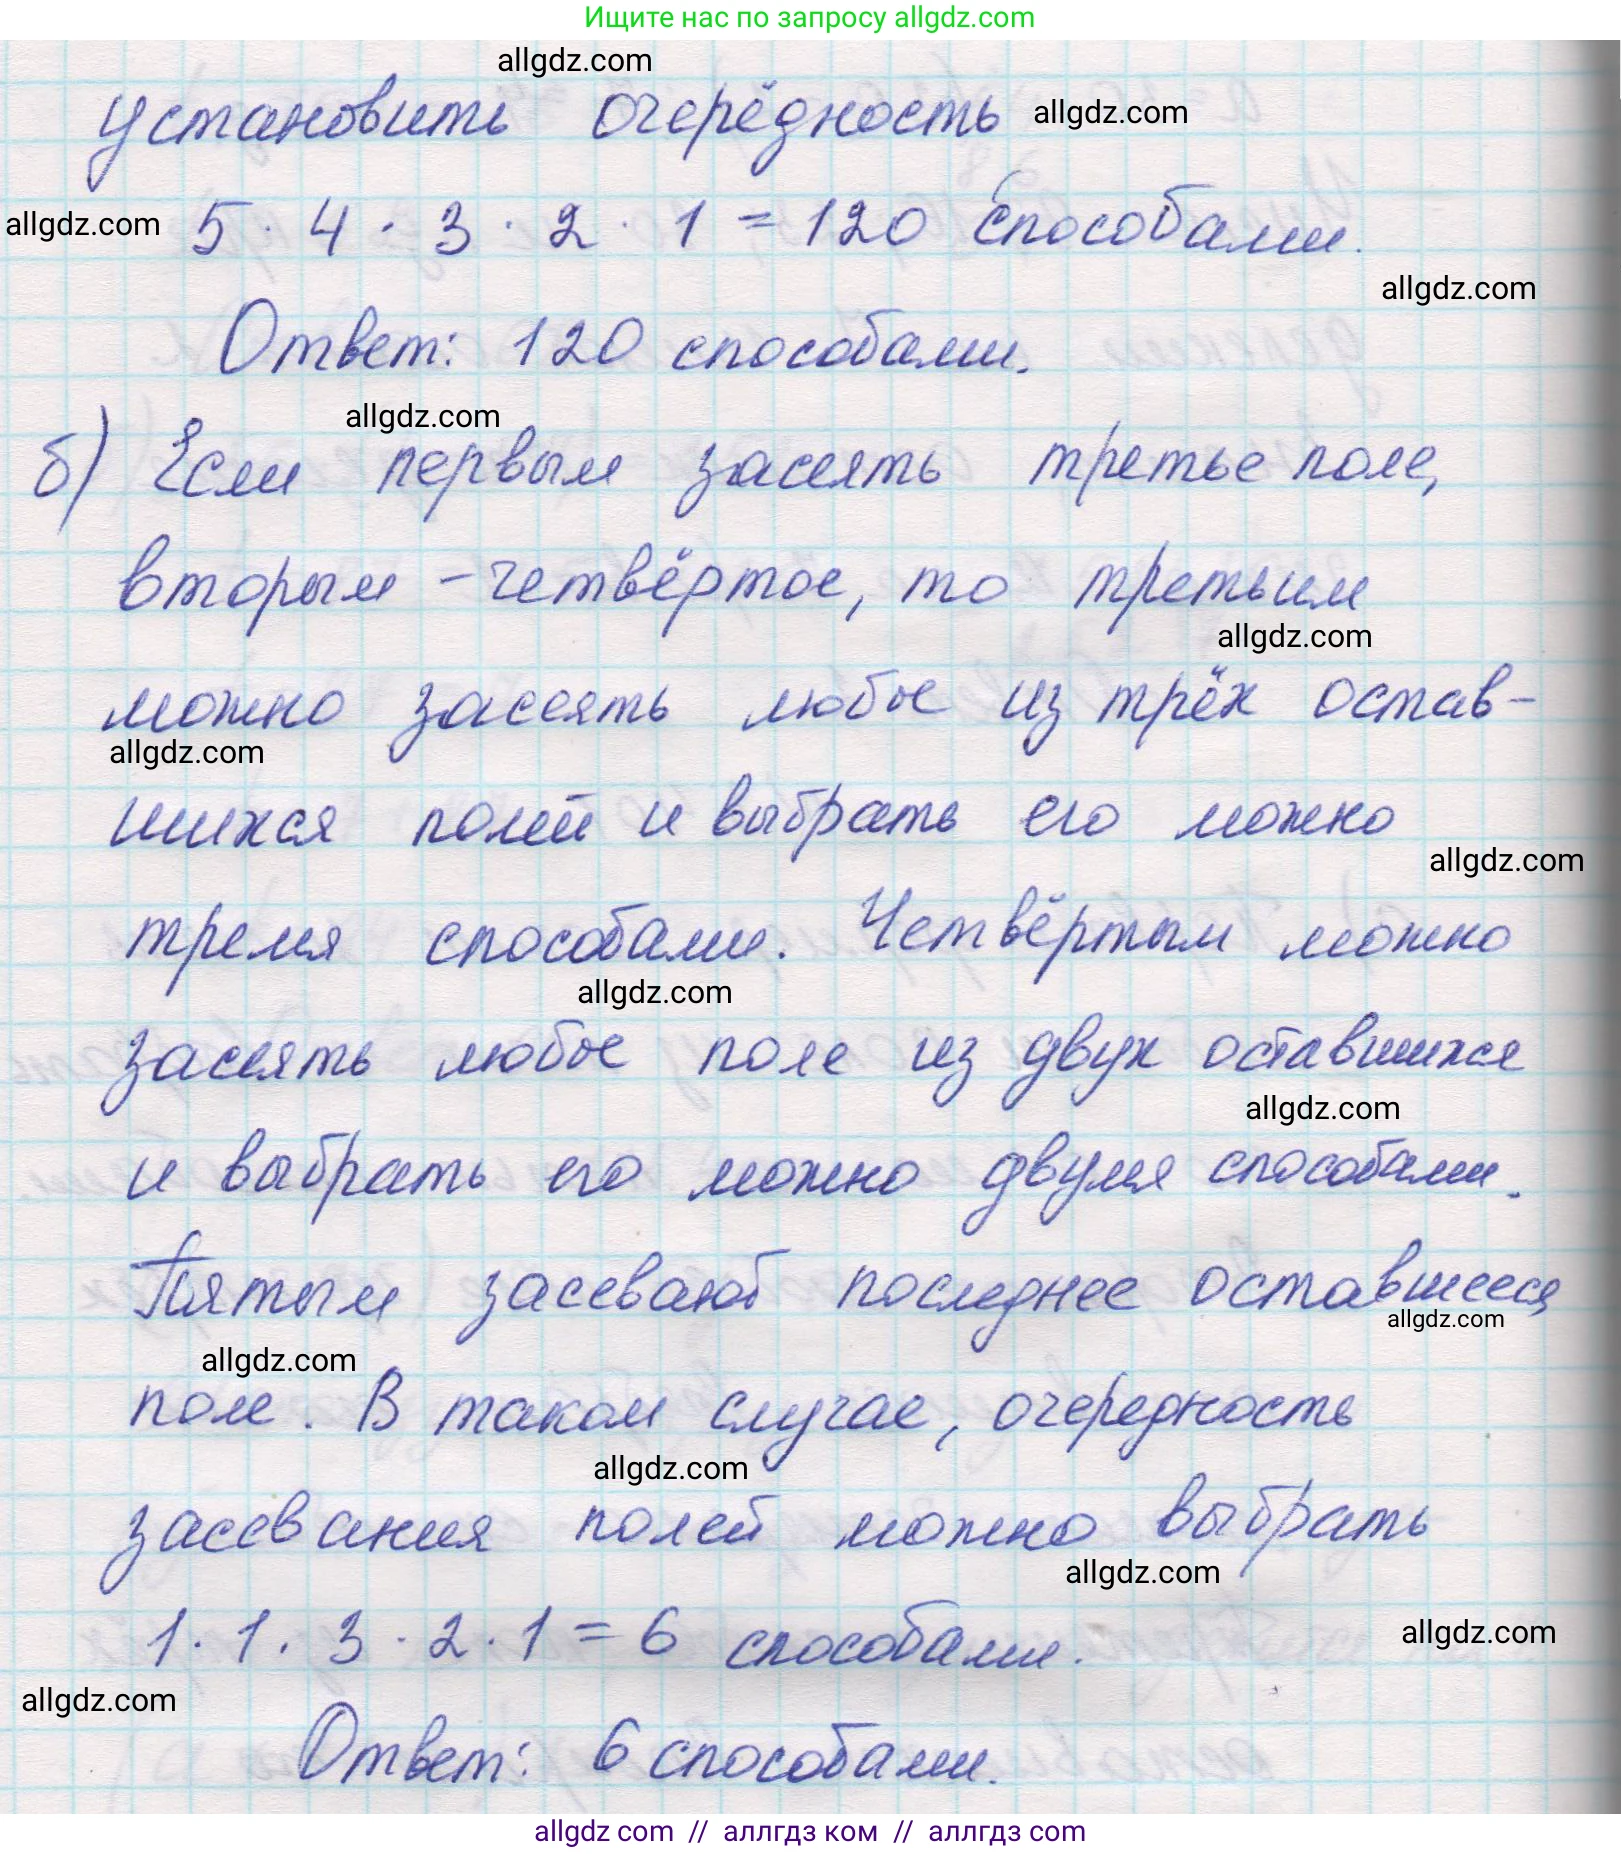 Ищите нас по запросу allgdz.com
allgdz.com
установить очерёдность allgdz.com
allgdz.com 5 · 4 · 3 · 2 · 1 = 120 способами.
allgdz.com
Ответ: 120 способами.
allgdz.com
б) Если первым засеять третье поле,
вторым – четвёртое, то третьим
allgdz.com
можно засеять любое из трёх остав-
allgdz.com
шихся полей и выбрать его можно
allgdz.com
тремя способами. Четвёртым можно
allgdz.com
засеять любое поле из двух оставшихся
allgdz.com
и выбрать его можно двумя способами.
Пятым засевают последнее оставшееся
allgdz.com
allgdz.com
поле. В таком случае, очередность
allgdz.com
засевания полей можно выбрать
allgdz.com
1 · 1 · 3 · 2 · 1 = 6 способами.
allgdz.com
allgdz.com
Ответ: 6 способами.
allgdz com // аллгдз ком // аллгдз com